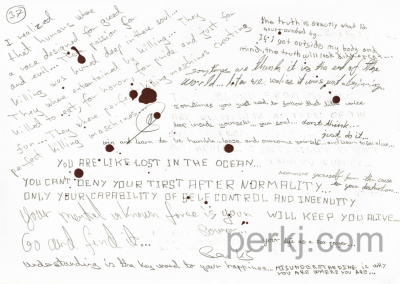 32
I realized
that humans were
a race designed for good
and evil... Their passion for
killing was buried deep their soul...
They were entertained by killing... They
killed to eat, for honor, for pride and just for
fun... They were perfect killing machines creating
perfect killing machines...
the truth is exactly what is
surrounded by...
If I get outside my body and
mind, the truth will look different...
sometimes we think it is the end of the
world... later we realize it was just a beginning.
sometimes you just need to know that
look inside yourself... your soul... don't think...
just do it...
win and learn to be humble... loose and overcome yourself... and learn to
YOU ARE LIKE LOST IN THE OCEAN...
remove yourself from the cause
to your destruction...
YOU CANT DENY YOUR TIRST AFTER NORMALITY...
ONLY YOUR CAPABILITY OF SELF CONTROL AND INGENUITY
WILL KEEP YOU ALIVE...
Your mental unknown force is your
Go and find it...
perkj.com
Understanding is the key word to your happiness...
MISUNDERSTANDING IS WHY
YOU ARE WHERE YOU ARE...